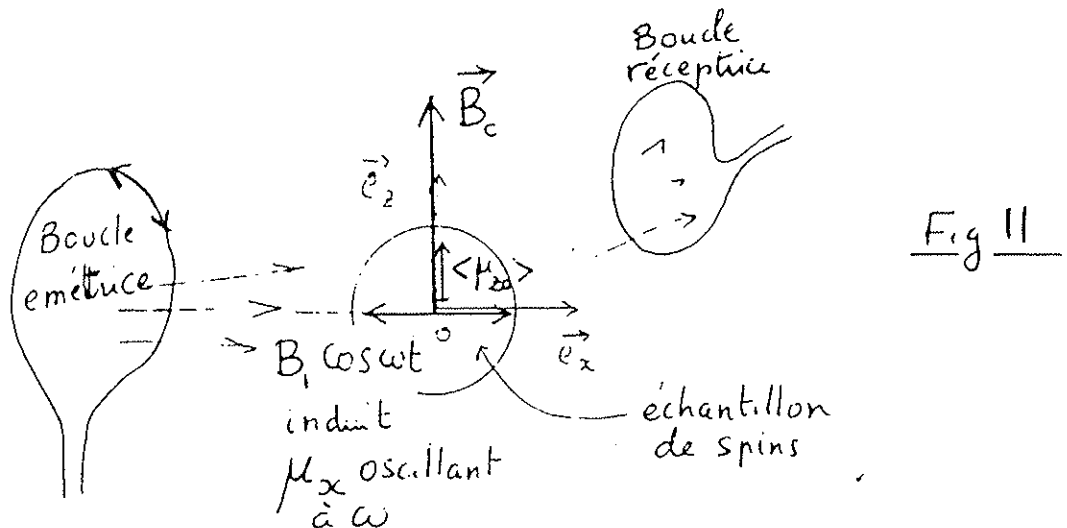 Boucle
réceptrice
B_c
e_z
Boucle
emettrice
<μ_zo>
Fig 11
o
e_x
B_1 cos ωt
induit
μ_x oscillant
à ω
échantillon
de spins